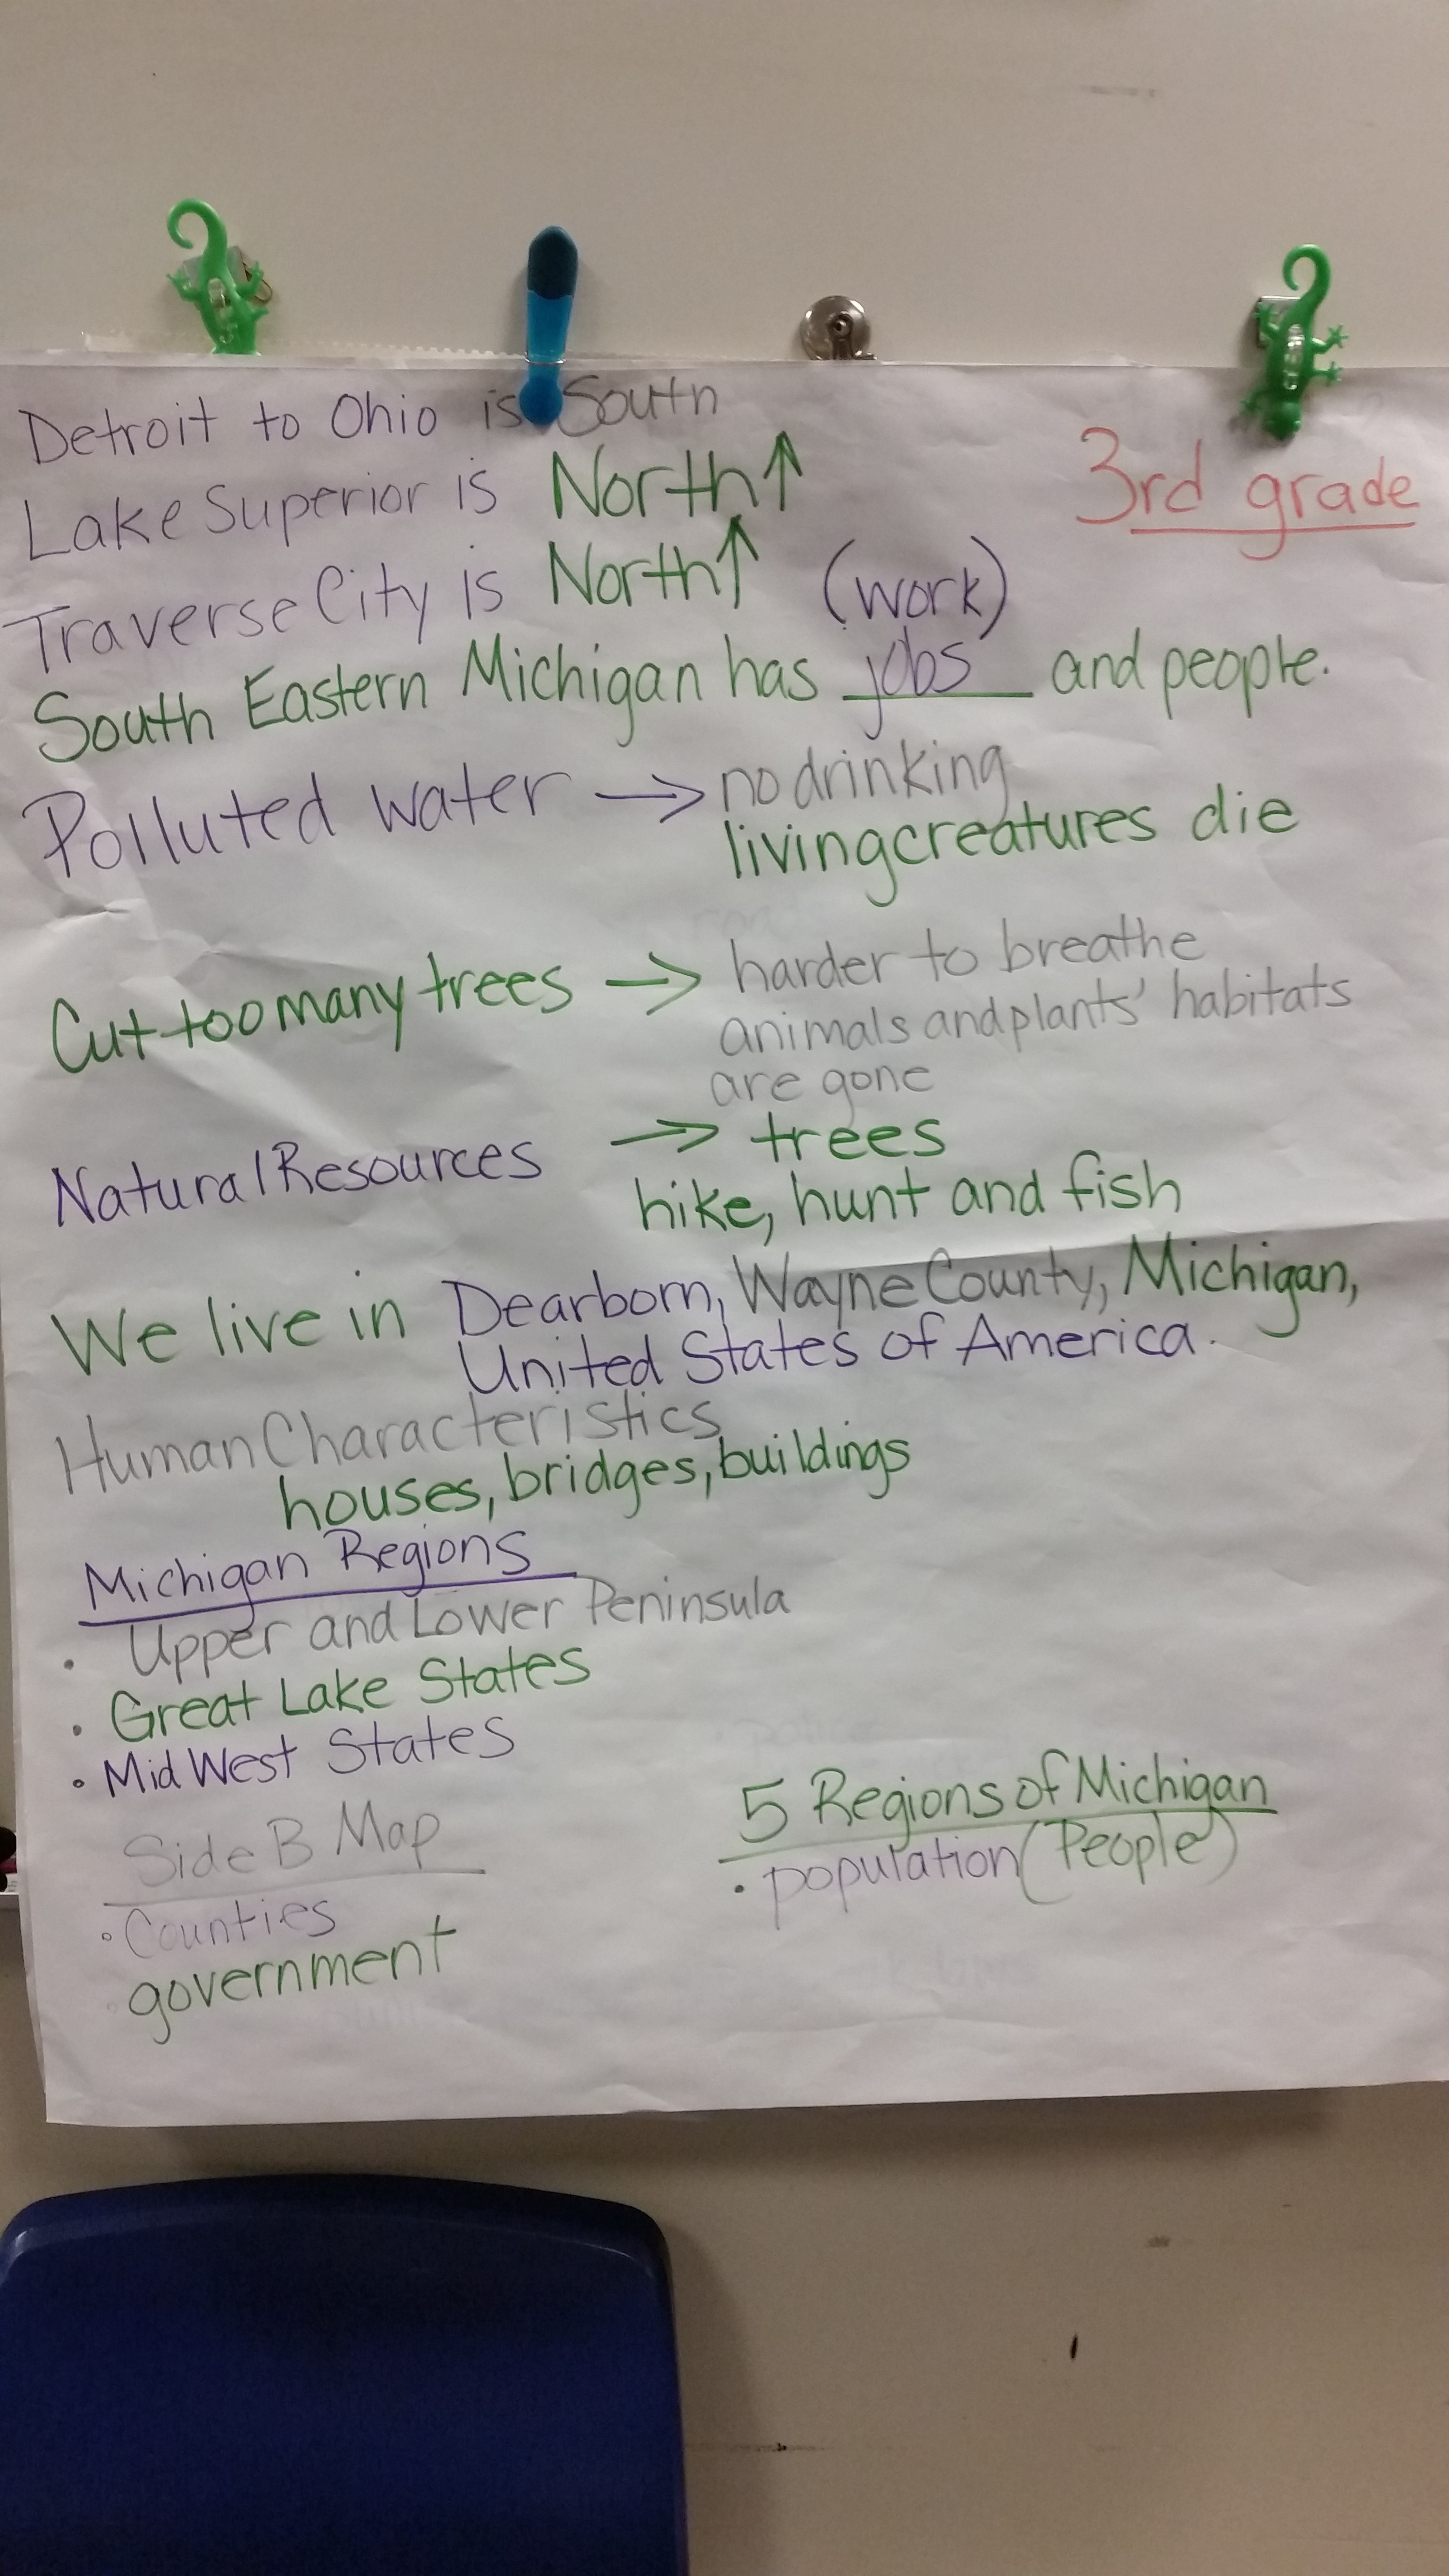 Detroit to Ohio is South
Lake Superior is North↑
3rd grade
Traverse City is North↑
(work)
South Eastern Michigan has jobs and people.
Polluted water → no drinking
living creatures die
Cut too many trees → harder to breathe
animals and plants' habitats
are gone
Natural Resources → trees
hike, hunt and fish
We live in Dearborn, Wayne County, Michigan,
United States of America.
Human Characteristics
houses, bridges, buildings
Michigan Regions
• Upper and Lower Peninsula
• Great Lake States
• Mid West States
Side B Map
• Counties
government
5 Regions of Michigan
• population (People)